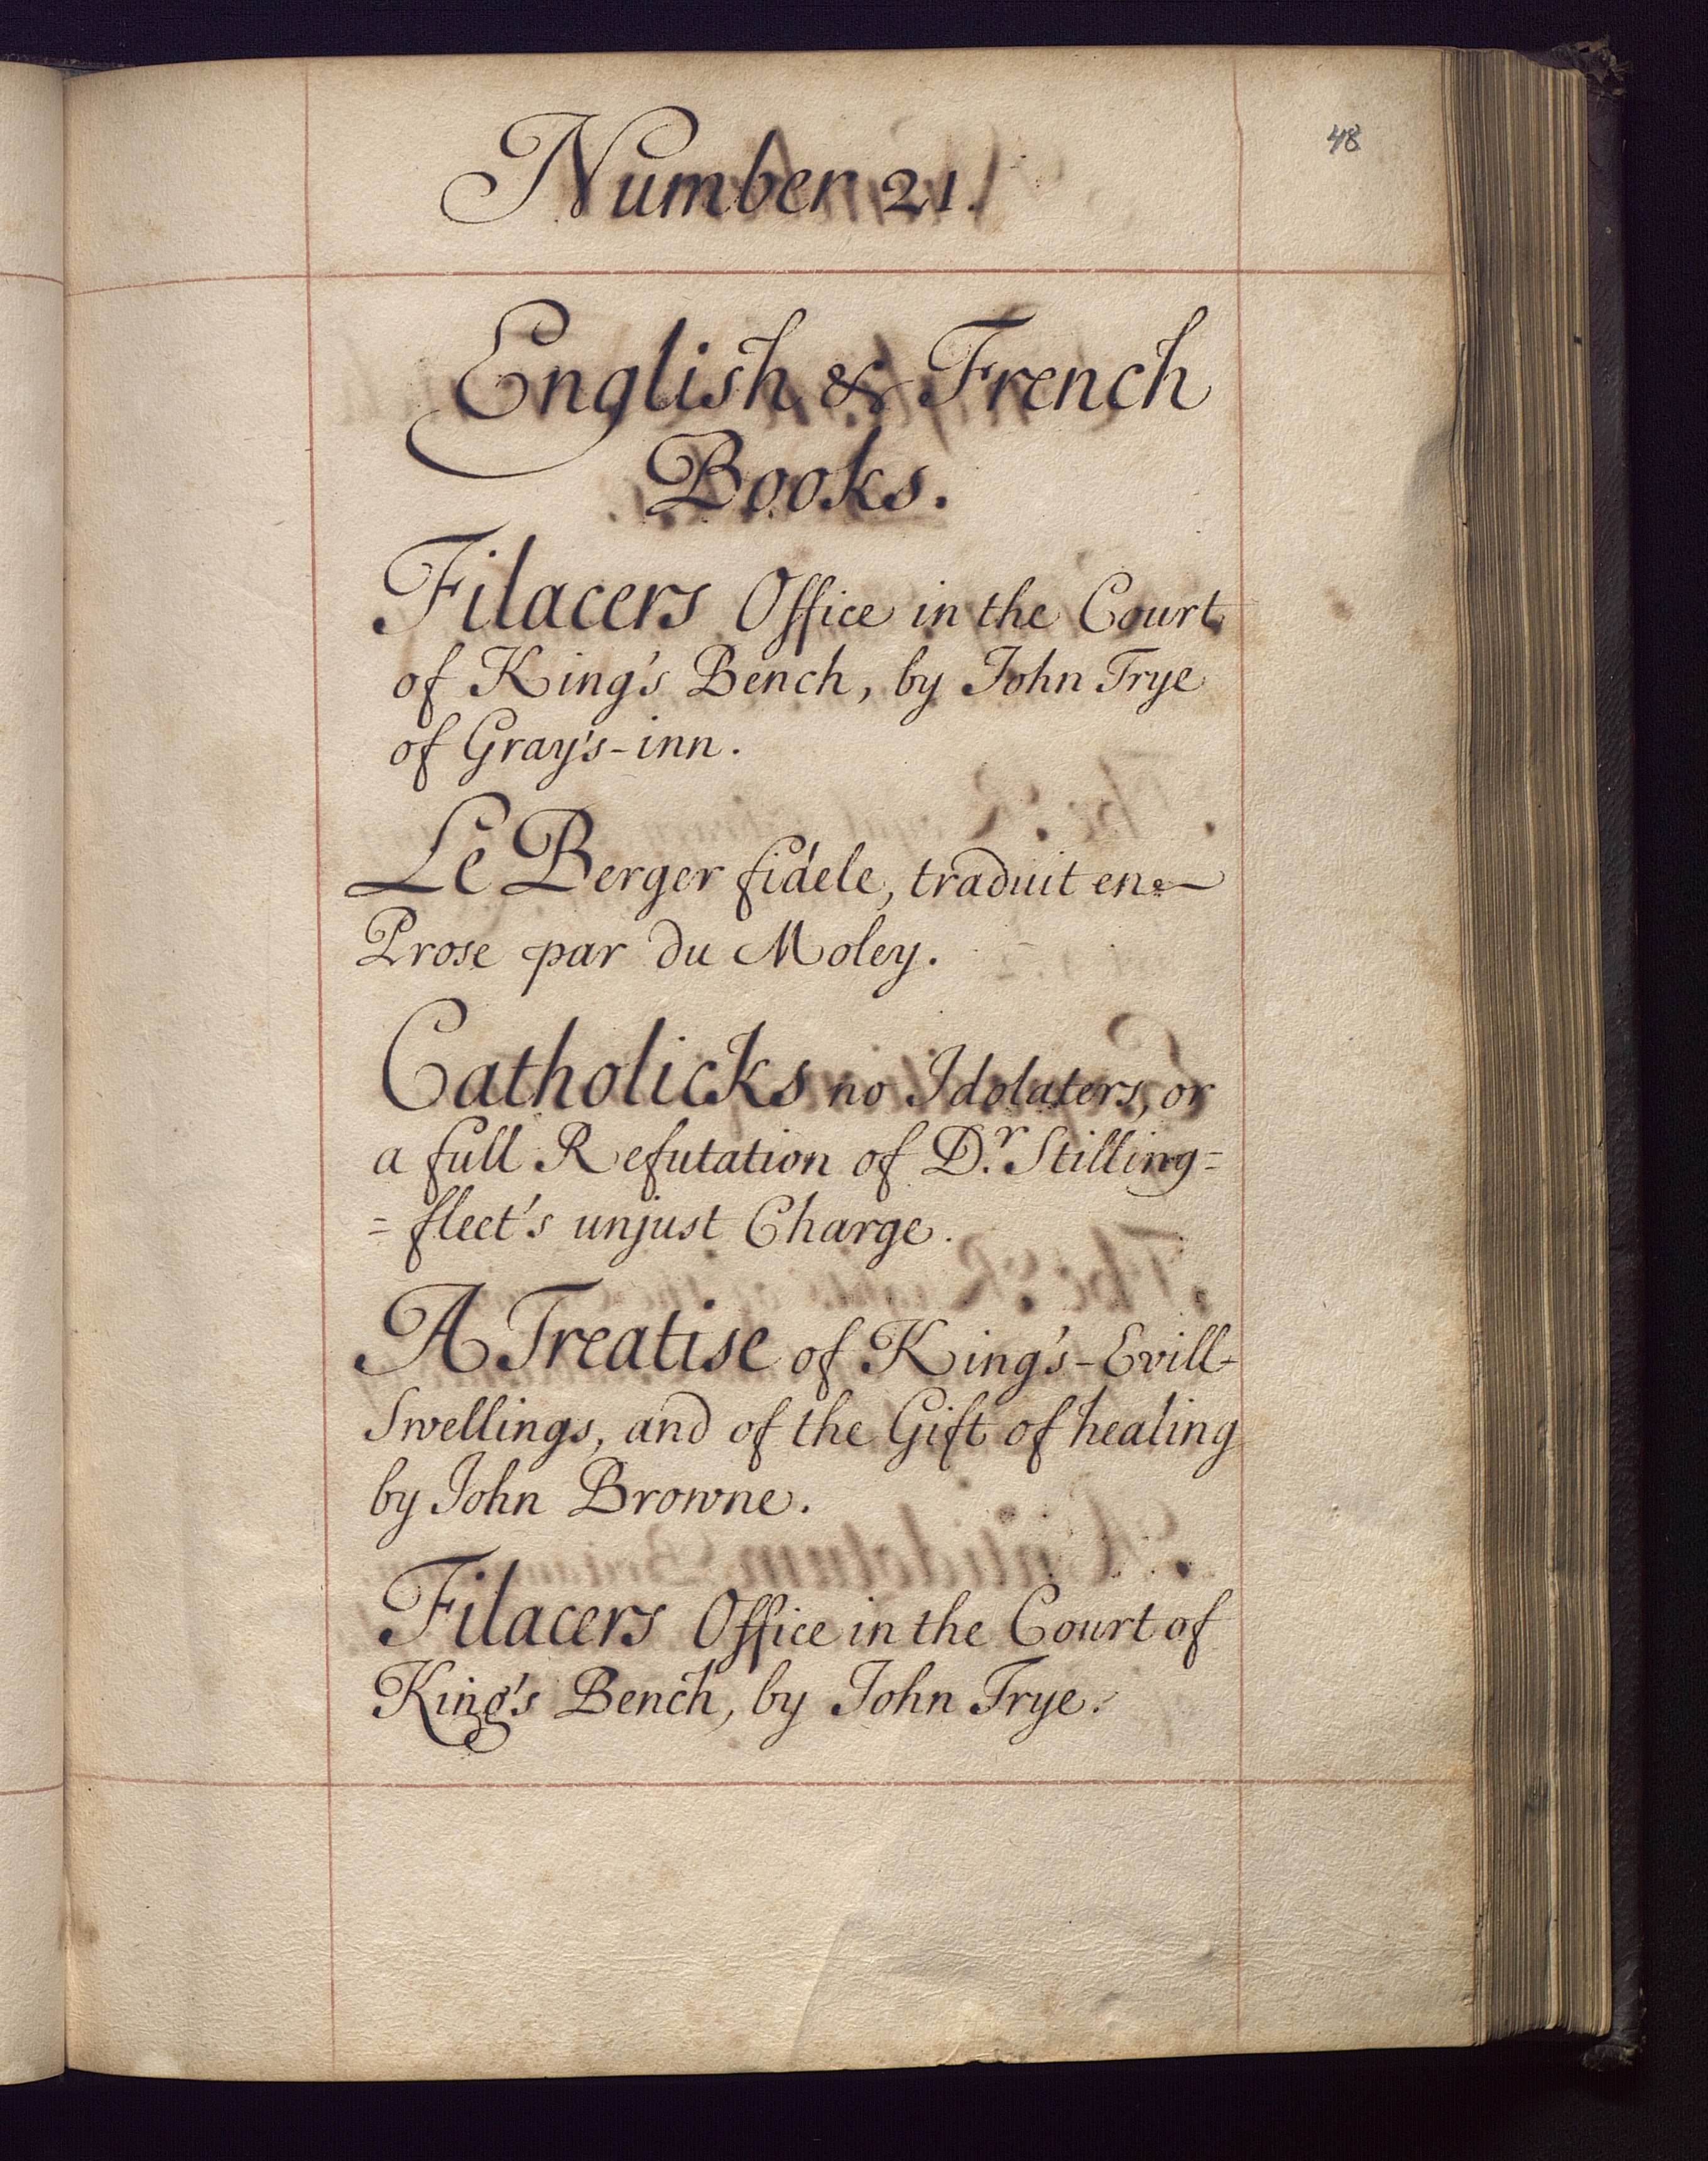 48
Number 21.
English & French
Books.
Filacers Office in the Court
of King's Bench, by John Trye
of Gray's-inn.
Le Berger fidele, traduit en
Prose par du Moley.
Catholicks no Idolaters, or
a full Refutation of D.r Stilling=
=fleet's unjust Charge.
A Treatise of King's-Evill-
Swellings, and of the Gift of healing
by John Browne.
Filacers Office in the Court of
King's Bench, by John Trye.